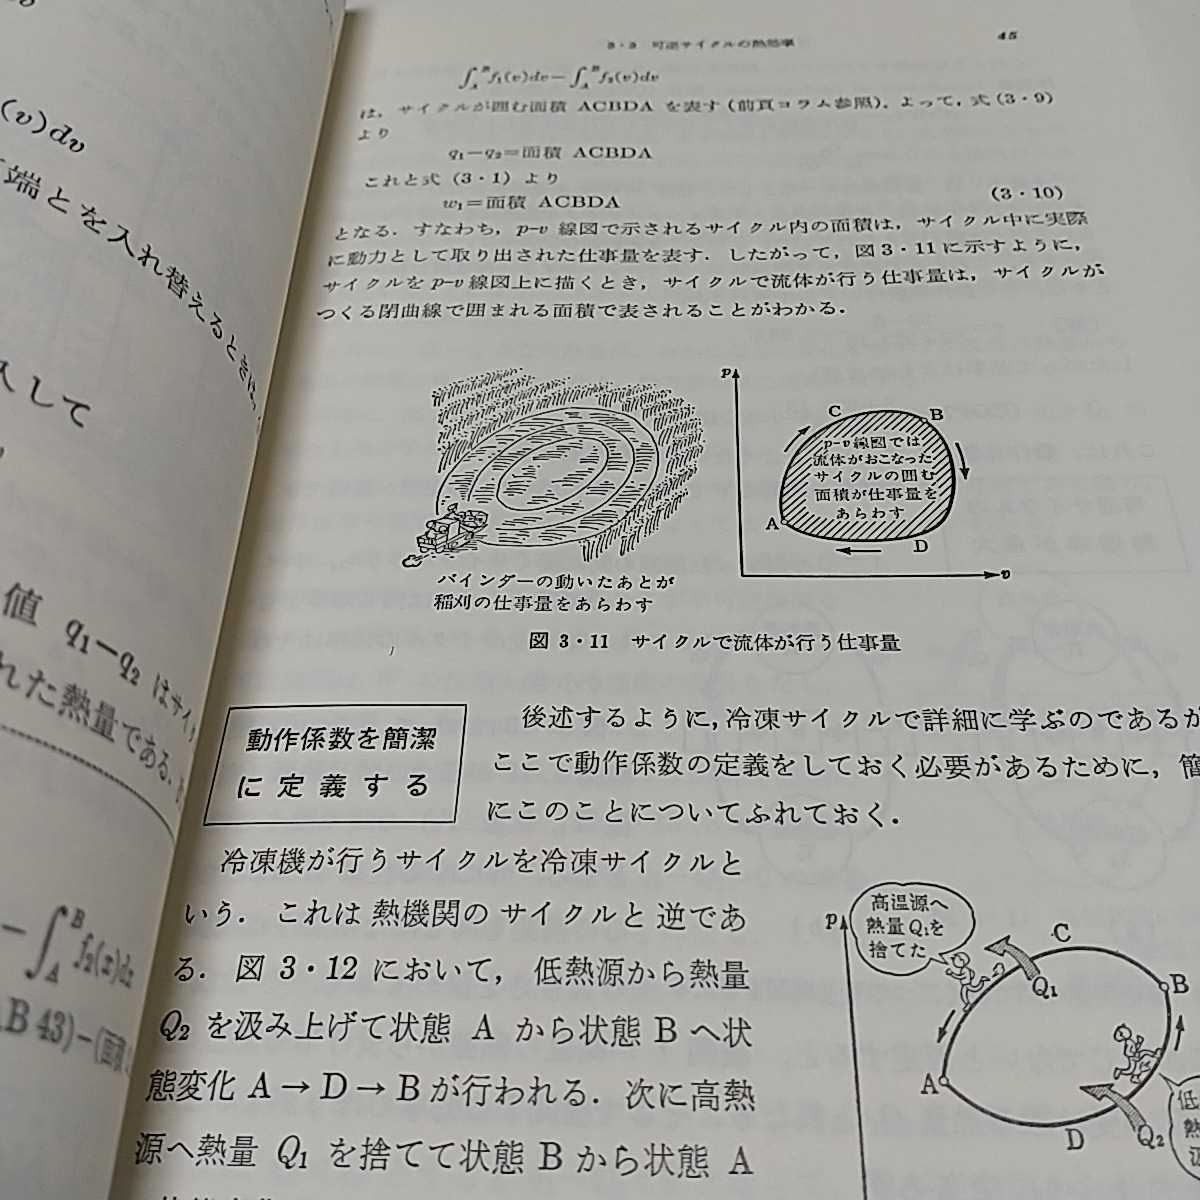 (v)dv
端とを入れ替えるとき
入して
値 q₁−q₂ はサイ
れた熱量である.
−∫_A^B f₂(x)dx
3・3 可逆サイクルの熱効率 45
∫_A^B f₁(v)dv−∫_A^B f₂(v)dv
は，サイクルが囲む面積 ACBDA を表す（前頁コラム参照）．よって，式（3・9）
より
q₁−q₂＝面積 ACBDA
これと式（3・1）より
w₁＝面積 ACBDA （3・10）
となる．すなわち，p−v 線図で示されるサイクル内の面積は，サイクル中に実際
に動力として取り出された仕事量を表す．したがって，図3・11に示すように，
サイクルを p−v 線図上に描くとき，サイクルで流体が行う仕事量は，サイクルが
つくる閉曲線で囲まれる面積で表されることがわかる．
p
C
B
p−v線図では
流体がおこなった
サイクルの囲む
面積が仕事量を
あらわす
A
D
v
バインダーの動いたあとが
稲刈の仕事量をあらわす
図 3・11 サイクルで流体が行う仕事量
動作係数を簡潔
に定義する
後述するように，冷凍サイクルで詳細に学ぶのであるが
ここで動作係数の定義をしておく必要があるために，簡
にこのことについてふれておく．
冷凍機が行うサイクルを冷凍サイクルと
いう．これは熱機関のサイクルと逆であ
る．図 3・12 において，低熱源から熱量
Q₂ を汲み上げて状態 A から状態 B へ状
態変化 A→D→B が行われる．次に高熱
源へ熱量 Q₁ を捨てて状態 B から状態 A
p
高温源へ
熱量Q₁を
捨てた
C
Q₁
B
A
D
Q₂
低
熱
源